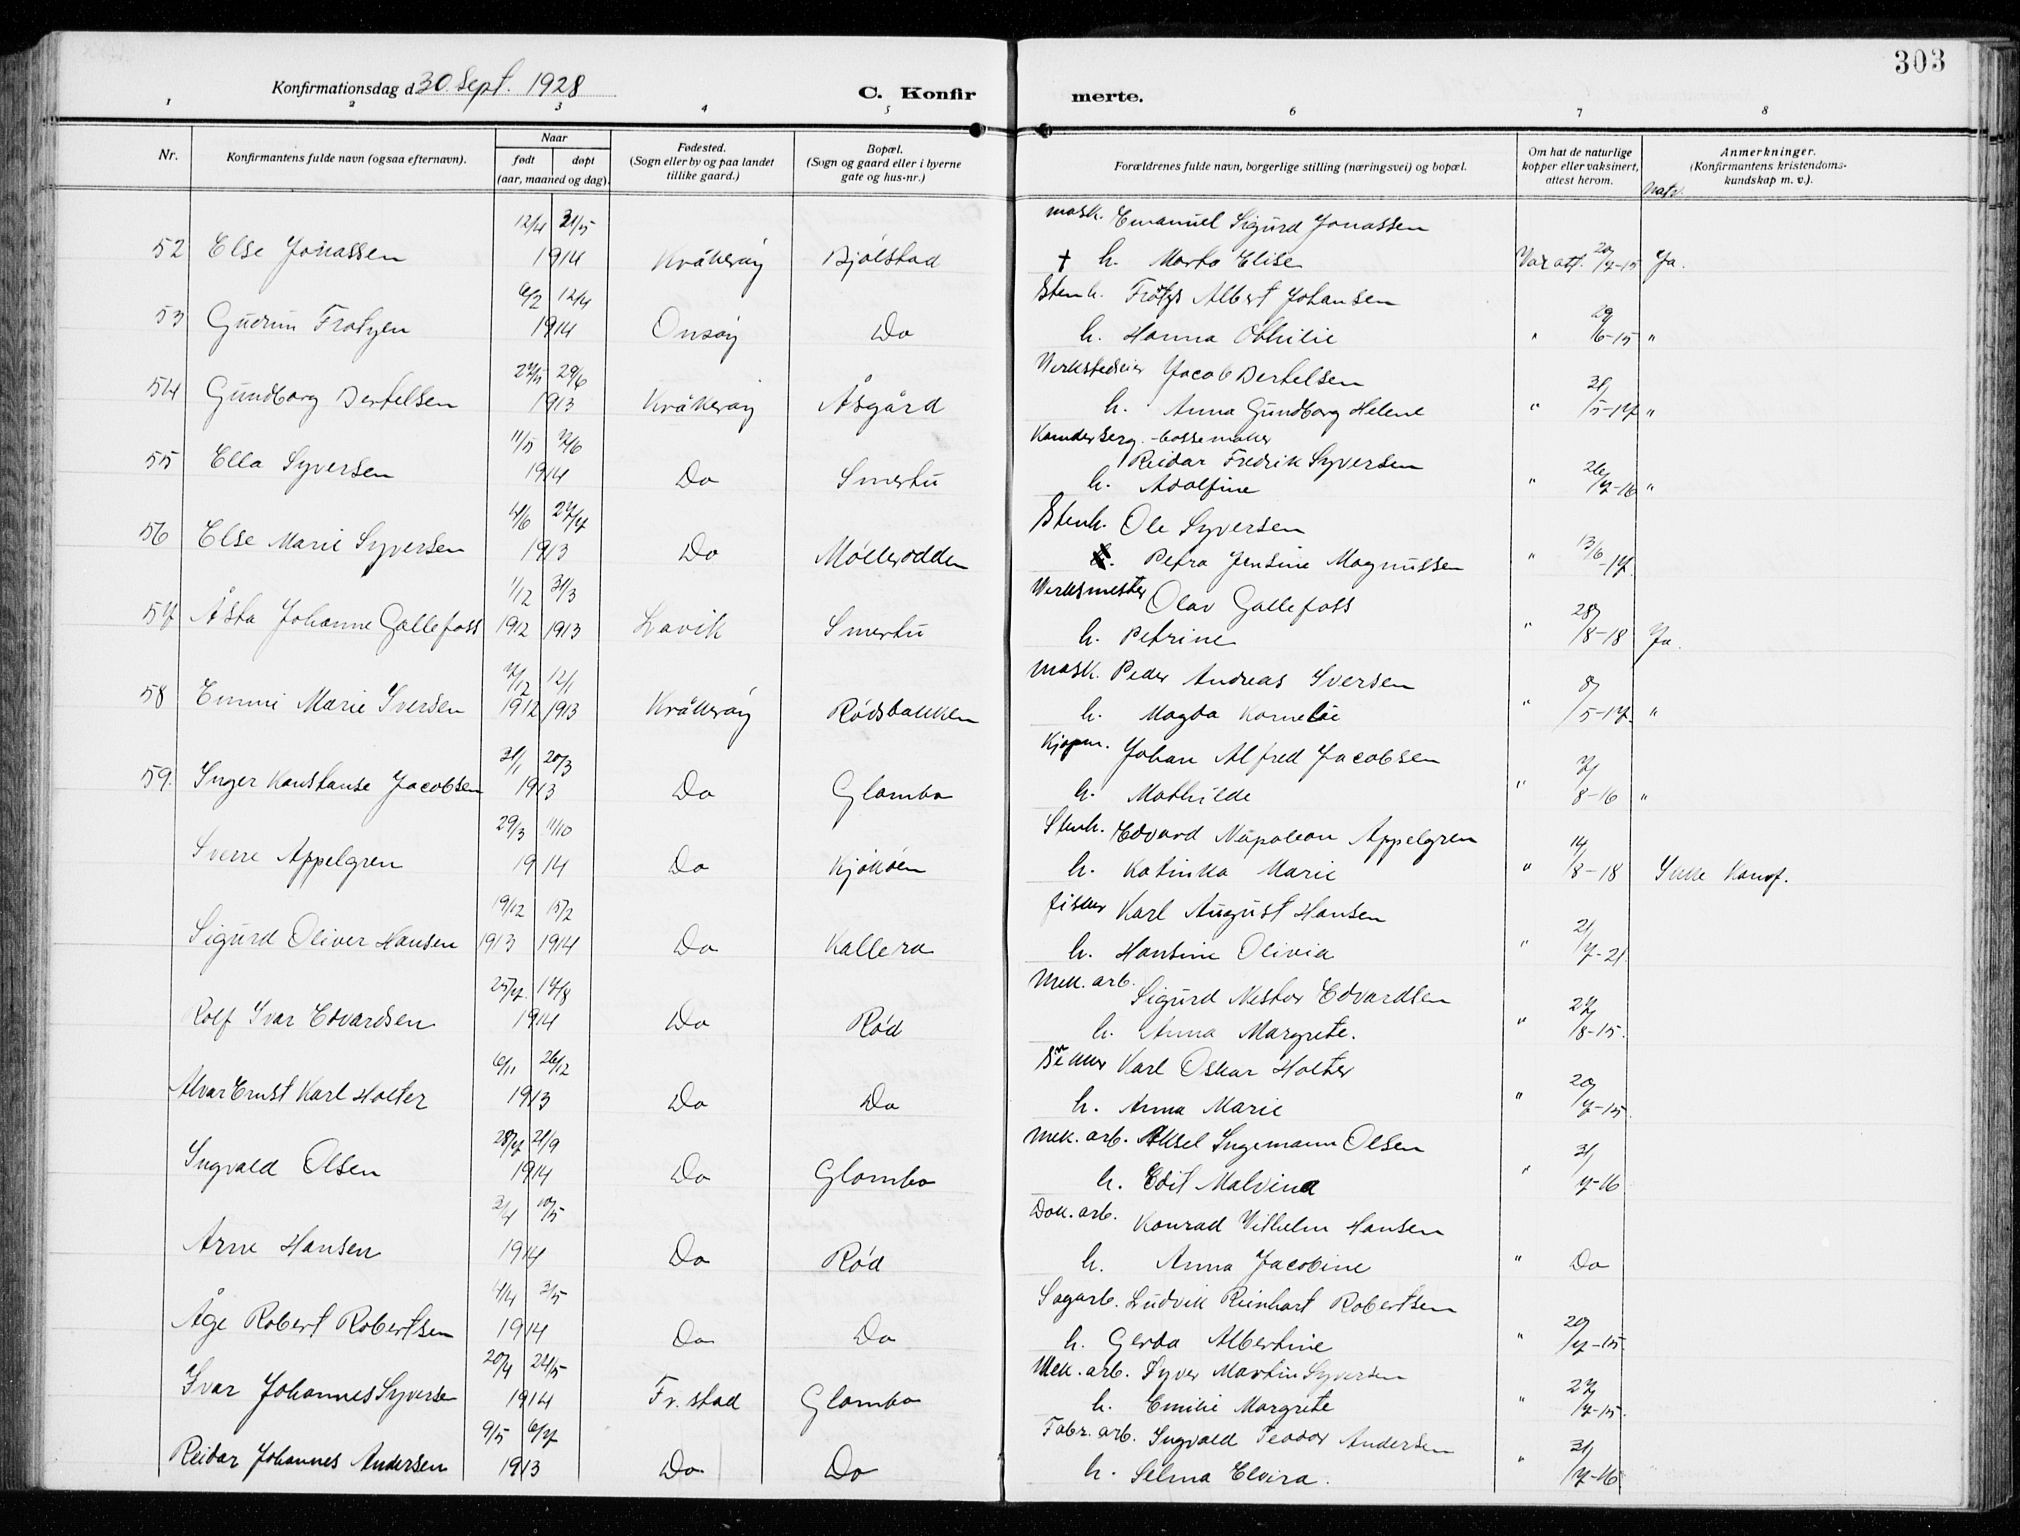 303
Konfirmationsdag d. 30. Sept. 1928 C. Konfir merte.
1 2 3 4 5 6 7 8
Nr. Konfirmantens fulde navn (ogsaa efternavn). Naar født døpt (aar, maaned og dag). Fødested. (Sogn eller by og paa landet tillike gaard.) Bopæl. (Sogn og gaard eller i byerne gate og hus-nr.) Forældrenes fulde navn, borgerlige stilling (næringsvei) og bopæl. Om hat de naturlige kopper eller vaksinert, attest herom. Anmerkninger. (Konfirmantens kristendomskundskap m. v.).
12/4 21/5 mask. Emanuel Sigurd Jonassen
52 Else Jonassen 1914 Kråkerøy Bjølstad † h. Marta Elise Var att. 20/7-15 Ja.
6/2 12/4 Stenh. Albert Johansen
53 Gudrun 1914 Onsøy Do h. Hanna Othilie " 29/6-15 "
29/6 Verkstedseier Jacob Bertelsen
54 Gundborg Bertelsen 1913 Kråkerøy Åsgård h. Anna Gundborg Helene " 31/5-17 "
11/5 7/6 Reidar Fredrik Syversen
55 Ella Syversen 1914 Do Smertu h. Adolfine " 26/7-16 "
4/6 27/7 Stenh. Ole Syversen
56 Else Marie Syversen 1913 Do Møllerodden Petra Jensine Magnussen " 13/6-17.
1/12 31/3 Verksmester Olav Gallefoss
57 Åsta Johanne Gallefoss 1912 1913 Lavik Smertu h. Petrine " 28/8-18 Ja.
7/12 12/1 mask. Peder Andreas Iversen
58 Emmi Marie Iversen 1912 1913 Kråkerøy Rødsbakken h. Magda Kornelie " 8/5-17. "
31/1 20/3 Kjøpm. Johan Alfred Jacobsen
59. Inger Konstanse Jacobsen 1913 Do Glombo h. Mathilde " 7/8-16 "
29/3 11/10 Stenh. Edvard Napoleon Appelgren
Sverre Appelgren 1914 Do Kjøkøen h. Katinka Marie " 14/8-18 Ikke Konf.
19/12 15/2 fisker Karl August Hansen
Sigurd Oliver Hansen 1913 1914 Do Kallera h. Hansine Olivia " 21/7-21.
25/7. 17/8 Mek. arb. Sigurd Nestor Edvardsen
Rolf Ivar Edvardsen 1914 Do Rød h. Anna Margrete. " 27/8-15.
6/11 26/12 Karl Oskar Holter
Alvar Ernst Karl Holter 1913 Do Do h. Anna Marie " 20/7-15.
28/7 21/9 Mek. arb. Aksel Ingemann Olsen
Ingvald Olsen 1914 Do Glombo h. Edit Malvina " 31/7-16
3/4 10/5 Dok. arb. Konrad Vilhelm Hansen
Arne Hansen 1914 Do Rød h. Anna Jacobine " Do
4/4 3/5 Sagarb. Ludvik Reinhart Robertsen
Åge Robert Robertsen 1914 Do Do h. Gerda Albertine " 20/7-15.
20/4 24/5 Mek. arb. Syver Martin Syversen
Ivar Johannes Syversen 1914 Fr. stad Glombo h. Emilie Margrete " 27/7-15.
9/5 6/7 Fabr. arb. Ingvald Teodor Andersen
Reidar Johannes Andersen 1913 Do Do h. Selma Elvira. " 31/7-16.